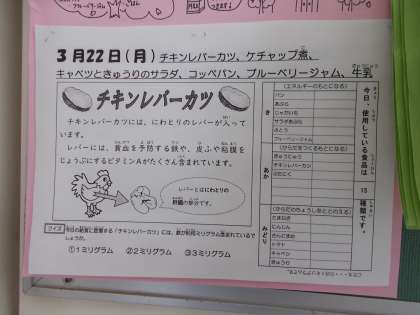 3月22日(月)チキンレバーカツ、ケチャップ煮、
キャベツときゅうりのサラダ、コッペパン、ブルーベリージャム、牛乳
チキンレバーカツ
チキンレバーカツには、にわとりのレバーが入って
います。
レバーには、貧血を予防する鉄や、皮ふや粘膜を
じょうぶにするビタミンAがたくさん含まれています。
レバーとはにわとりの
肝臓の部分です。
クイズ
①1ミリグラム ②2ミリグラム ③3ミリグラム
今日、使用している食品は
15
種類です。
き
(エネルギーのもとになる)
パン
あぶら
じゃがいも
サラダあぶら
さとう
ブルーベリージャム
あか
(からだをつくるもとになる)
ぎゅうにゅう
チキンレバーカツ
ぶたにく
みどり
(からだのちょうしをととのえる)
たまねぎ
にんじん
トマト
キャベツ
きゅうり